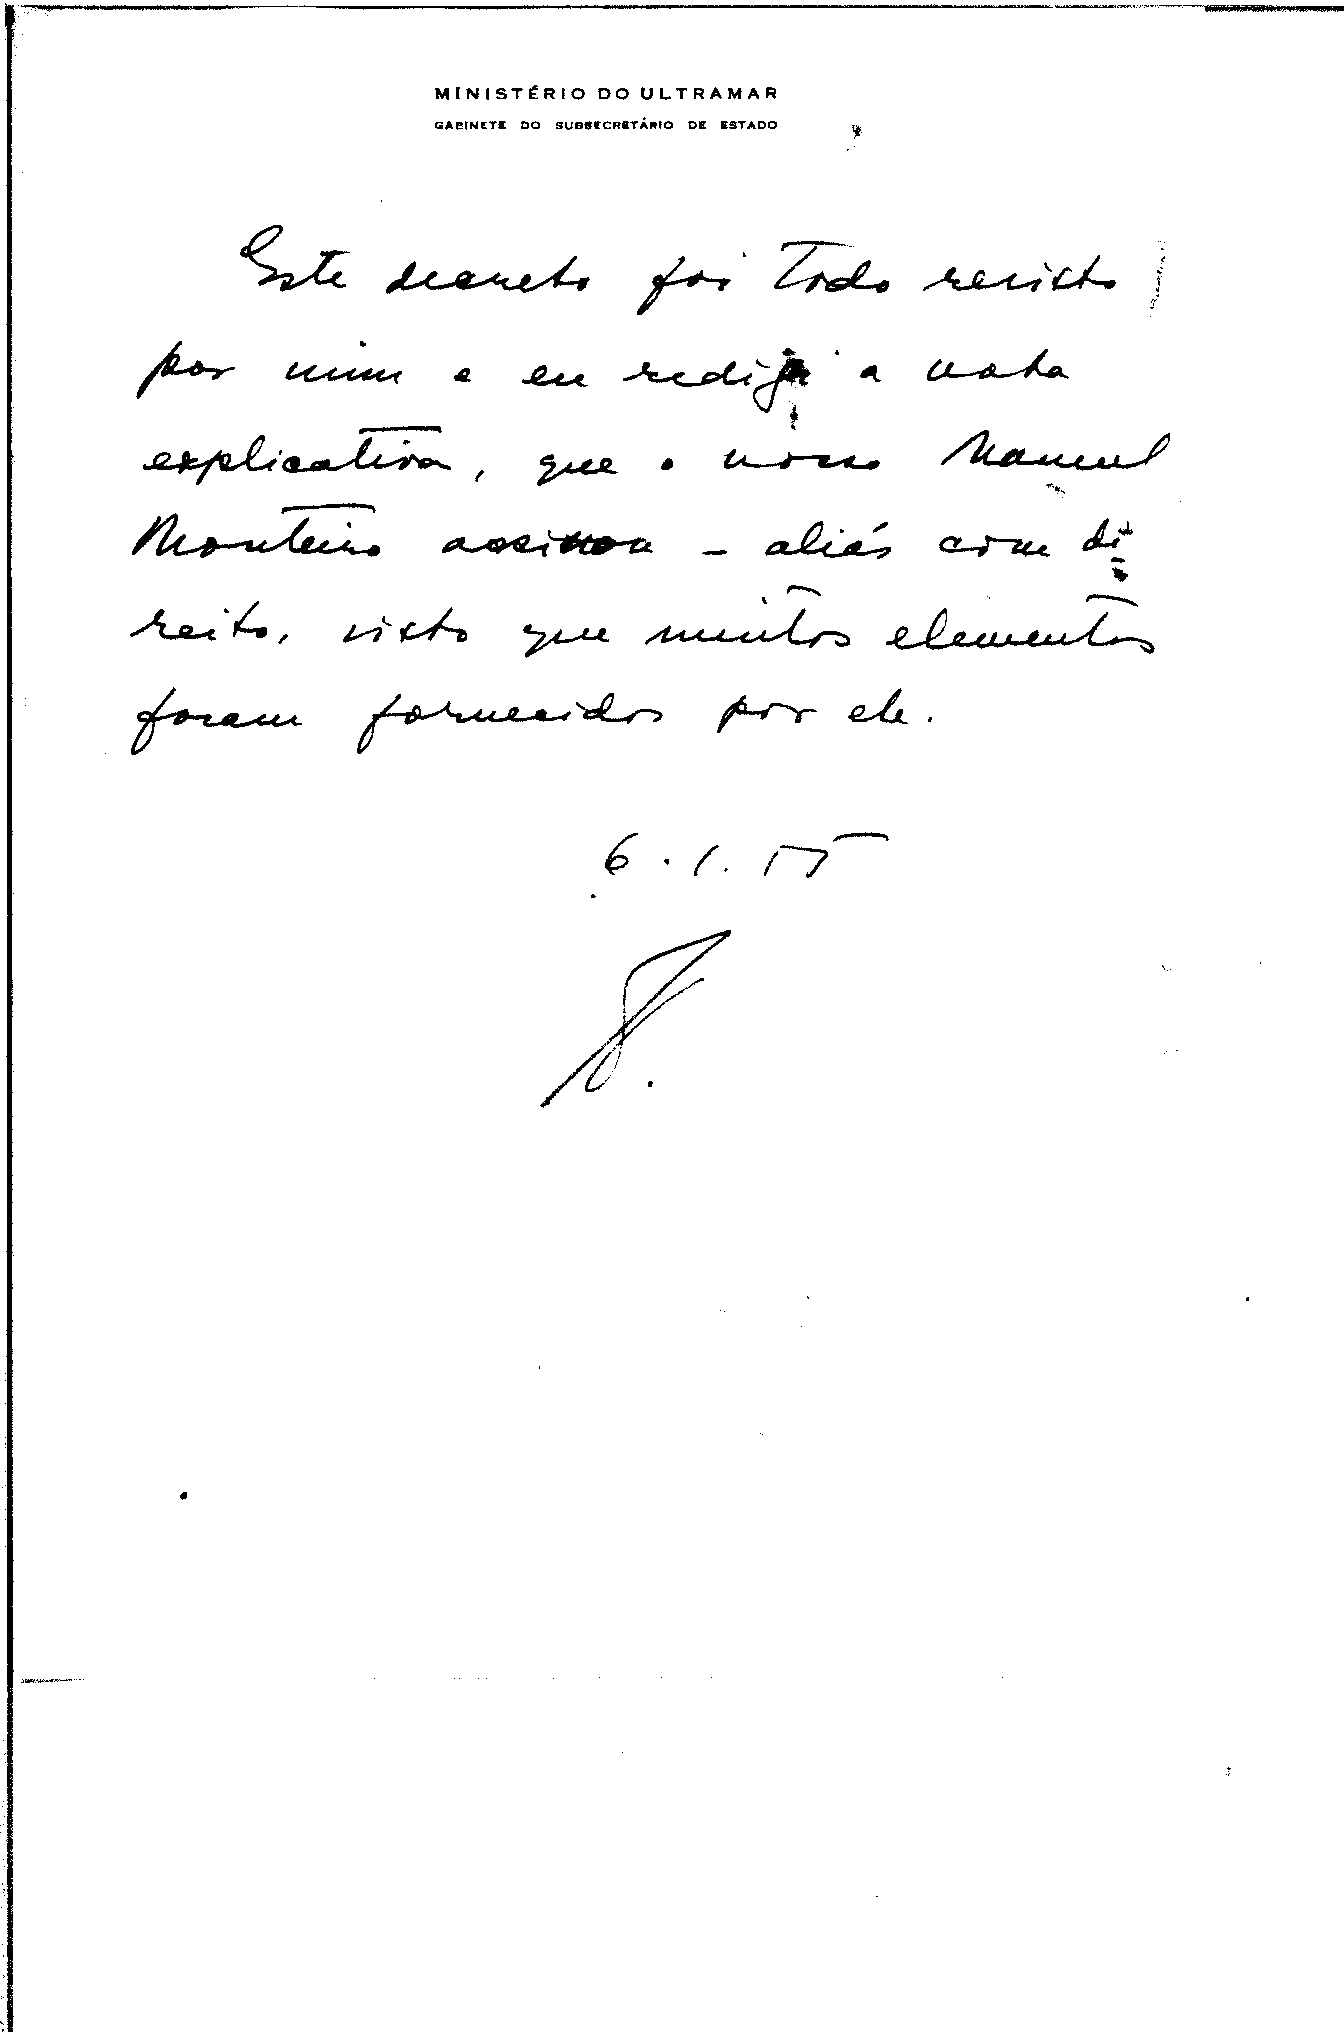 MINISTÉRIO DO ULTRAMAR
GABINETE DO SUBSECRETÁRIO DE ESTADO
Este decreto foi todo revisto
por mim e eu redigi a nota
explicativa, que o nosso Manuel
Monteiro assinou - aliás com di-
reito, visto que muitos elementos
foram fornecidos por ele.
6.1.55